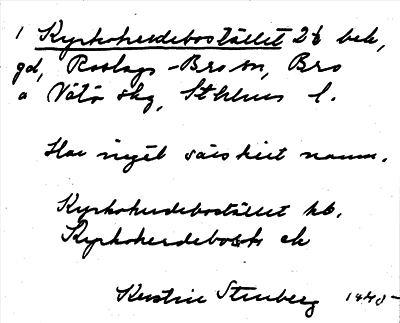 1 Kyrkoherdebostället 2/6 bek,
gd, Roslags-Bro sn, Bro
o Vätö skg, Sthlms l.
Har inget särskilt namn.
Kyrkoherdebostället kb.
Kyrkoherdebost. ek
Kerstin Stenberg 1940